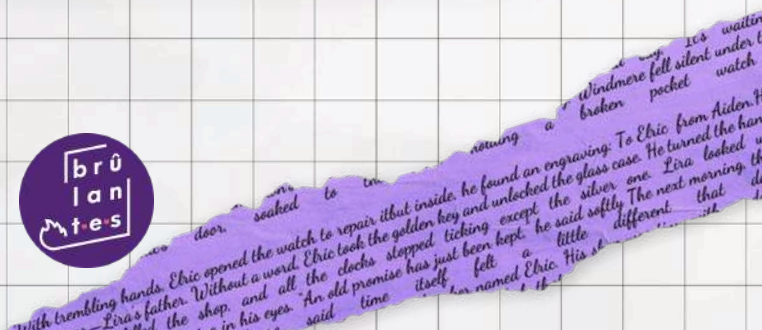 brû
lan
t•e•s
It's waitin
Windmere fell silent under t
broken pocket watch
nothing a
soaked to the
door.
With trembling hands, Elric opened the watch to repair itbut inside, he found an engraving: To Elric from Aiden.H
—Lira's father. Without a word, Elric took the golden key and unlocked the glass case. He turned the han
the shop, and all the clocks stopped ticking except the silver one. Lira looked
in his eyes. "An old promise has just been kept, he said softly The next morning, th
said time itself felt a little different that
named Elric. His
with